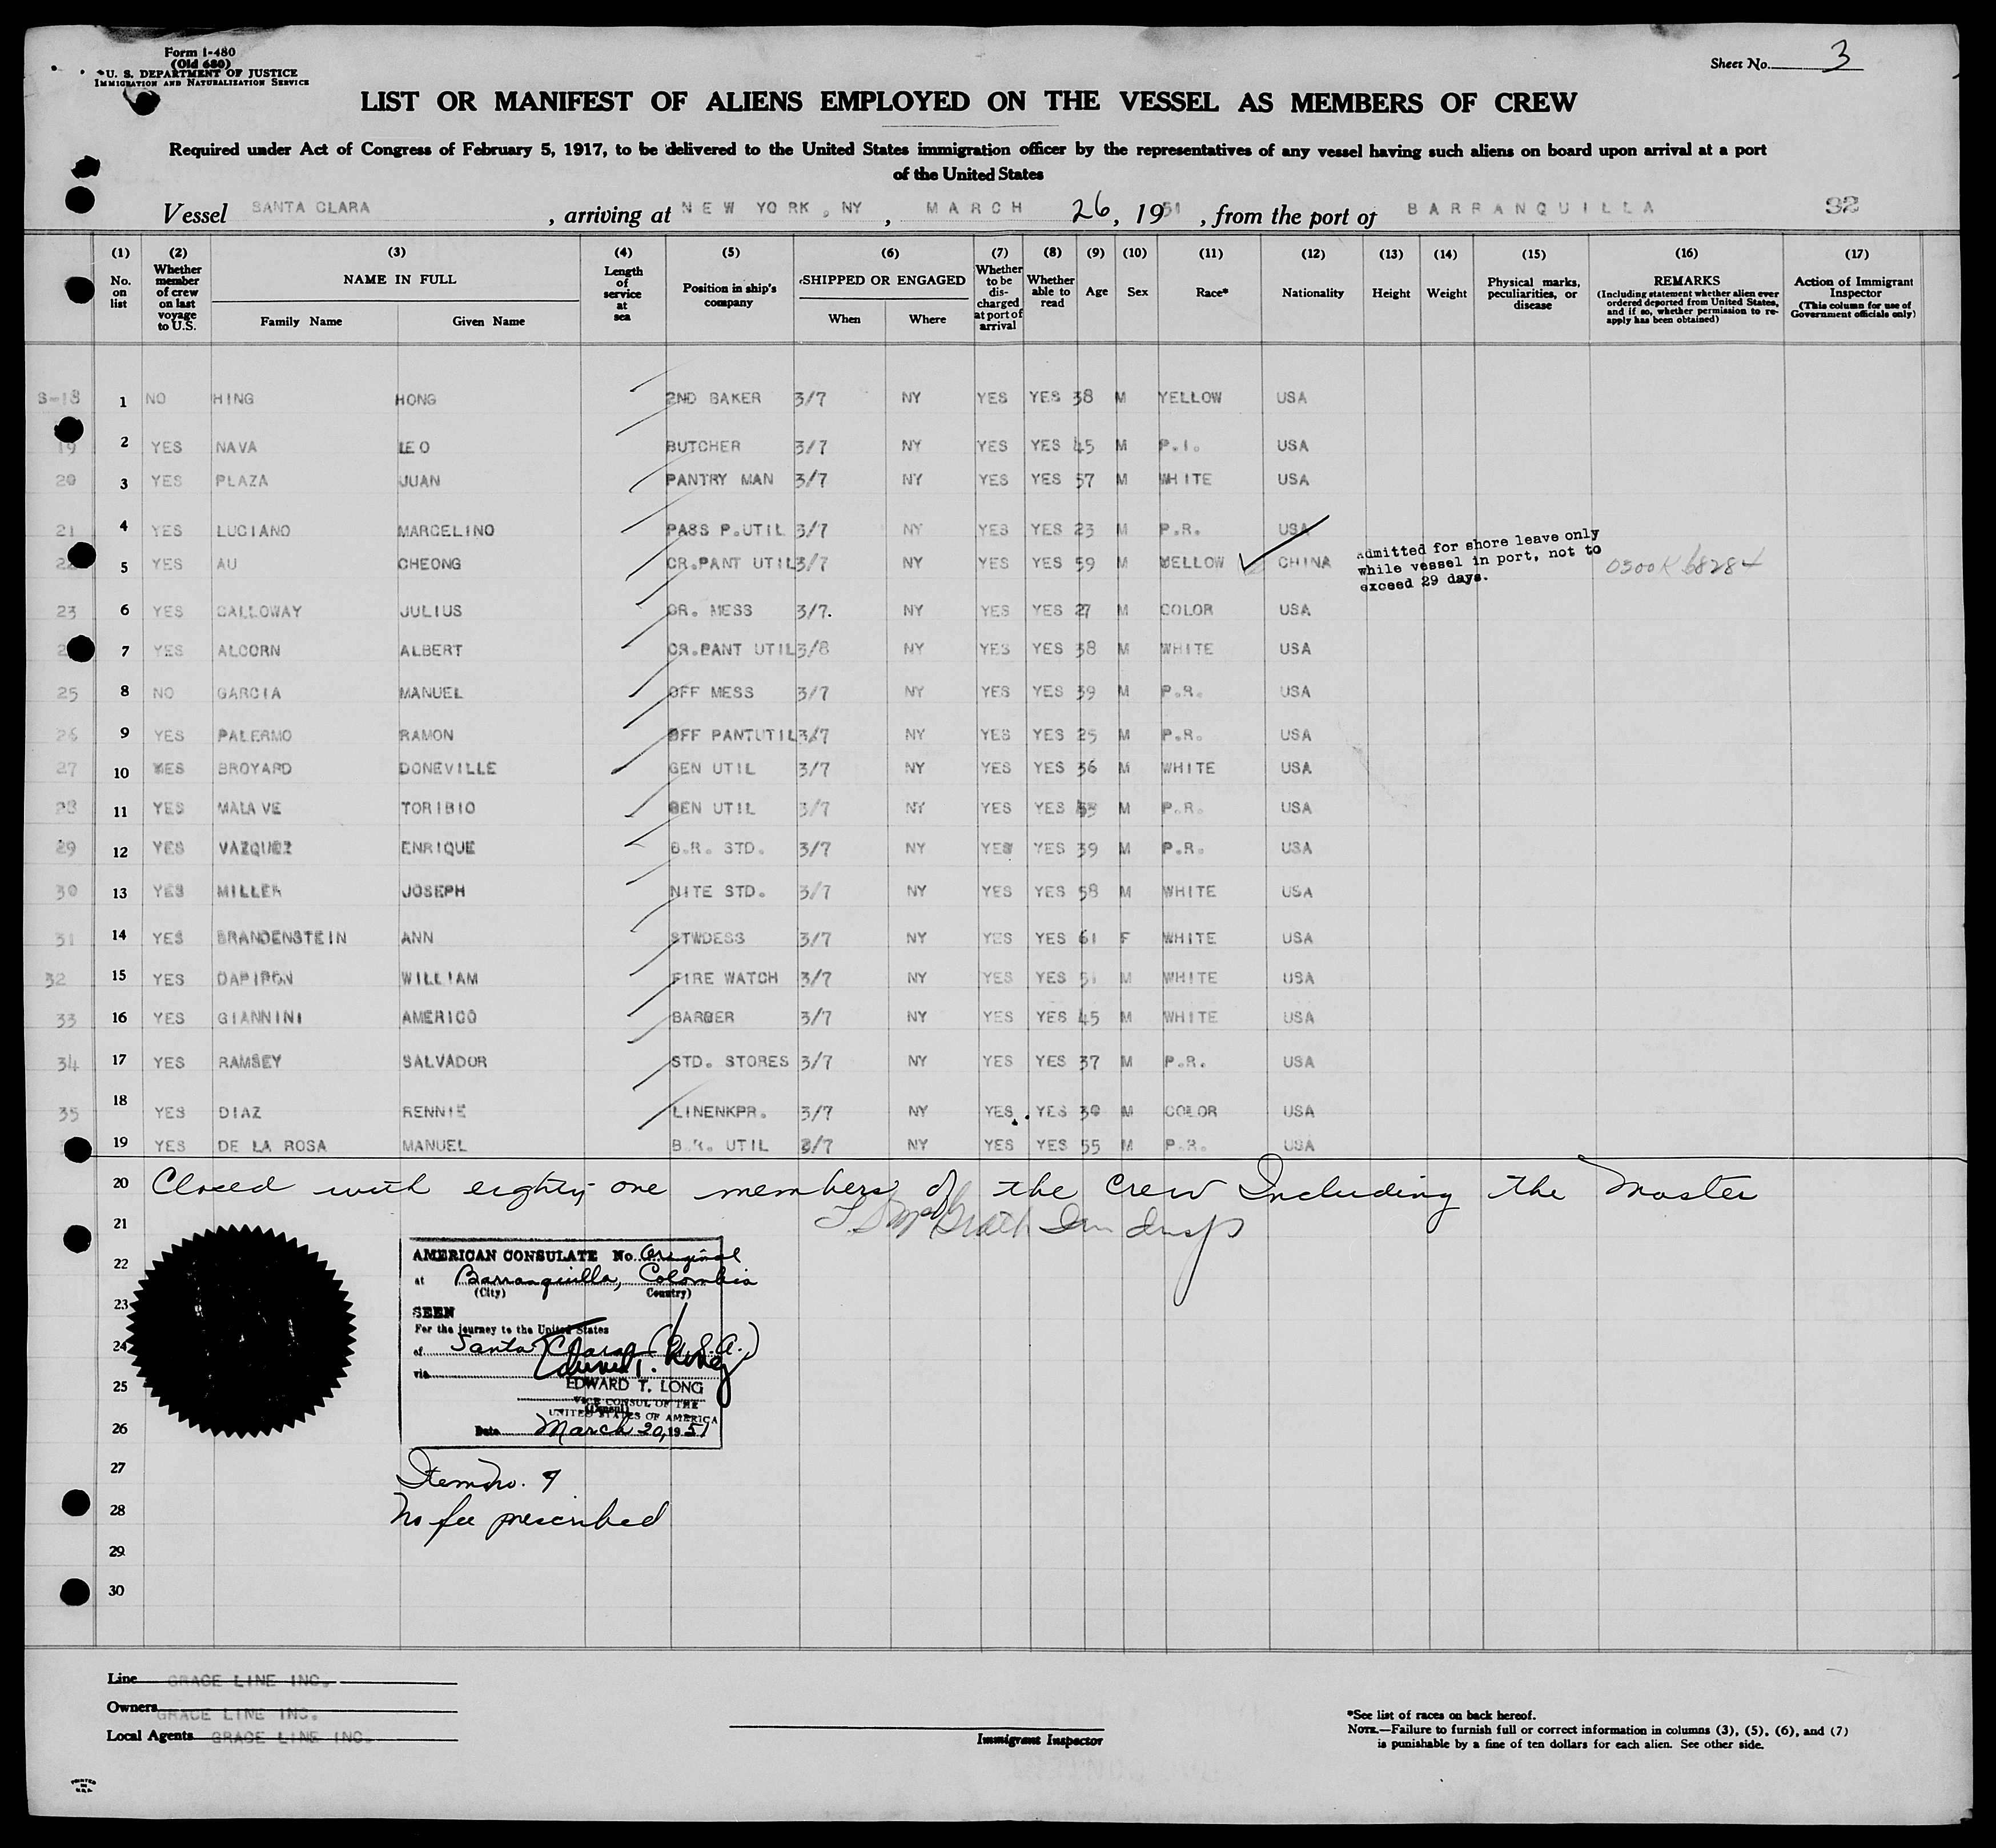 Form I-480
(Old 680)
U. S. DEPARTMENT OF JUSTICE
IMMIGRATION AND NATURALIZATION SERVICE
Sheet No. 3
LIST OR MANIFEST OF ALIENS EMPLOYED ON THE VESSEL AS MEMBERS OF CREW
Required under Act of Congress of February 5, 1917, to be delivered to the United States immigration officer by the representatives of any vessel having such aliens on board upon arrival at a port
of the United States
Vessel SANTA CLARA , arriving at NEW YORK, NY , MARCH 26, 1951 , from the port of BARRANQUILLA 32
(1) (2) (3) (4) (5) (6) (7) (8) (9) (10) (11) (12) (13) (14) (15) (16) (17)
No. on list
Whether member of crew on last voyage to U.S.
NAME IN FULL
Family Name Given Name
Length of service at sea
Position in ship's company
SHIPPED OR ENGAGED
When Where
Whether to be discharged at port of arrival
Whether able to read
Age
Sex
Race*
Nationality
Height
Weight
Physical marks, peculiarities, or disease
REMARKS
(Including statement whether alien ever ordered deported from United States, and if so, whether permission to reapply has been obtained)
Action of Immigrant Inspector
(This column for use of Government officials only)
S-18 1 NO HING HONG 2ND BAKER 3/7 NY YES YES 38 M YELLOW USA
19 2 YES NAVA LEO BUTCHER 3/7 NY YES YES 45 M P.I. USA
20 3 YES PLAZA JUAN PANTRY MAN 3/7 NY YES YES 57 M WHITE USA
21 4 YES LUCIANO MARCELINO PASS P.UTIL 3/7 NY YES YES 23 M P.R. USA
5 YES AU CHEONG CR.PANT UTIL 3/7 NY YES YES 59 M YELLOW CHINA
Admitted for shore leave only
while vessel in port, not to
exceed 29 days.
0300K 68284
23 6 YES CALLOWAY JULIUS CR. MESS 3/7. NY YES YES 27 M COLOR USA
7 YES ALCORN ALBERT CR.PANT UTIL 3/8 NY YES YES 38 M WHITE USA
25 8 NO GARCIA MANUEL OFF MESS 3/7 NY YES YES 39 M P.R. USA
26 9 YES PALERMO RAMON OFF PANTUTIL 3/7 NY YES YES 25 M P.R. USA
27 10 YES BROYARD DONEVILLE GEN UTIL 3/7 NY YES YES 36 M WHITE USA
28 11 YES MALAVE TORIBIO GEN UTIL 3/7 NY YES YES M P.R. USA
29 12 YES VAZQUEZ ENRIQUE B.R. STD. 3/7 NY YES YES 39 M P.R. USA
30 13 YES MILLER JOSEPH NITE STD. 3/7 NY YES YES 58 M WHITE USA
31 14 YES BRANDENSTEIN ANN STWDESS 3/7 NY YES YES 61 F WHITE USA
32 15 YES DAPIRON WILLIAM FIRE WATCH 3/7 NY YES YES 51 M WHITE USA
33 16 YES GIANNINI AMERICO BARBER 3/7 NY YES YES 45 M WHITE USA
34 17 YES RAMSEY SALVADOR STD. STORES 3/7 NY YES YES 37 M P.R. USA
35 18 YES DIAZ RENNIE LINENKPR. 3/7 NY YES. YES 30 M COLOR USA
19 YES DE LA ROSA MANUEL B.R. UTIL 3/7 NY YES YES 55 M P.R. USA
20 Closed with eighty-one members of the crew Including the Master
21
22
23
24
25
26
27
28
29
30
AMERICAN CONSULATE No. Original
at Barranquilla, Colombia
(City) (Country)
SEEN
For the journey to the United States
of Santa Clara (U.S.A.)
via
EDWARD T. LONG
VICE CONSUL OF THE
UNITED STATES OF AMERICA
Date March 20, 1951
Item no. 9
No fee prescribed
Line GRACE LINE INC.
Owners GRACE LINE INC.
Local Agents GRACE LINE INC.
Immigrant Inspector
*See list of races on back hereof.
NOTE.—Failure to furnish full or correct information in columns (3), (5), (6), and (7)
is punishable by a fine of ten dollars for each alien. See other side.
PRINTED
IN
U.S.A.